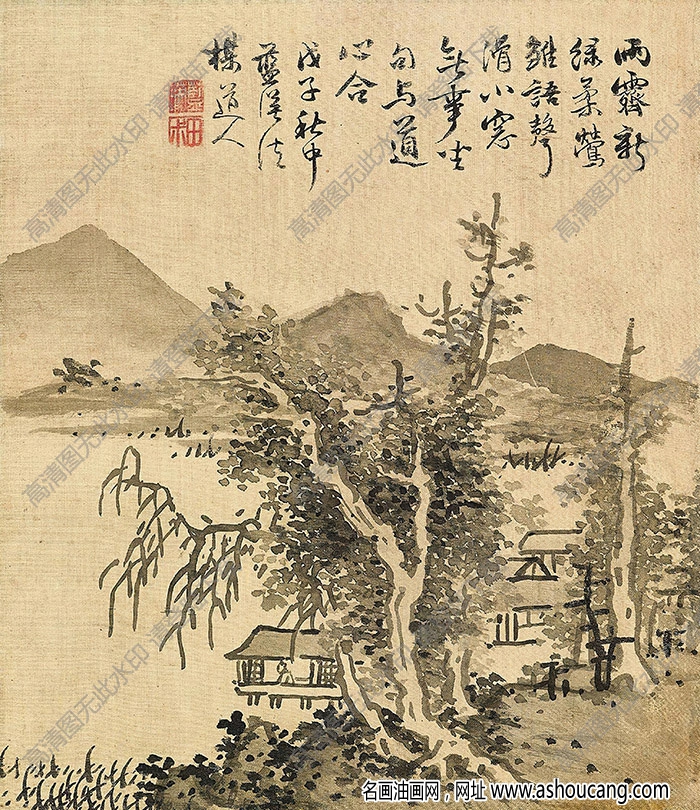 雨霽新
緑柔鶯
雛語聲
滑小窓
無事
句与道
心合
戊子秋中
藍
道人
高清图无此水印
名画油画网，网址 www.ashoucang.com